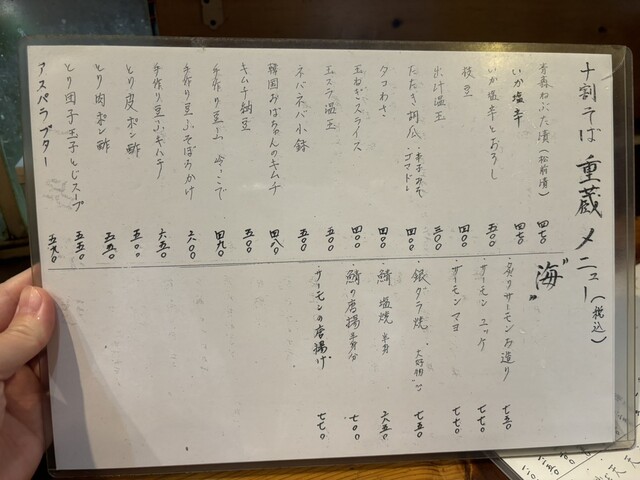 十割そば 重蔵 メニュー(税込)
青森ねぶた漬(松前漬) 四七〇
いか塩辛 四七〇
いか塩辛とおろし 五〇〇
枝豆 四〇〇
出汁温玉 三〇〇
たたき胡瓜 ・辛子みそ ・ゴマドレ 四〇〇
タコわさ 四〇〇
玉ねぎスライス 四〇〇
玉スラ温玉 五〇〇
ネバネバ小鉢 五〇〇
韓国おばちゃんのキムチ 四八〇
キムチ納豆 五〇〇
手作り豆ふ 冷〻こで 四九〇
手作り豆ふそぼろかけ 六〇〇
手作り豆ふキムチ 六五〇
とり皮ポン酢 五〇〇
とり肉ポン酢 五五〇
とり団子玉子とじスープ 五五〇
アスパラバター 五五〇
"海"
・炙りサーモンお造り 七五〇
・サーモンユッケ 七七〇
・サーモンマヨ 七七〇
・銀ダラ焼 大好物 七五〇
・鯖塩焼 半身 六五〇
・鯖の唐揚 半身分 七〇〇
・サーモンの唐揚げ 七七〇